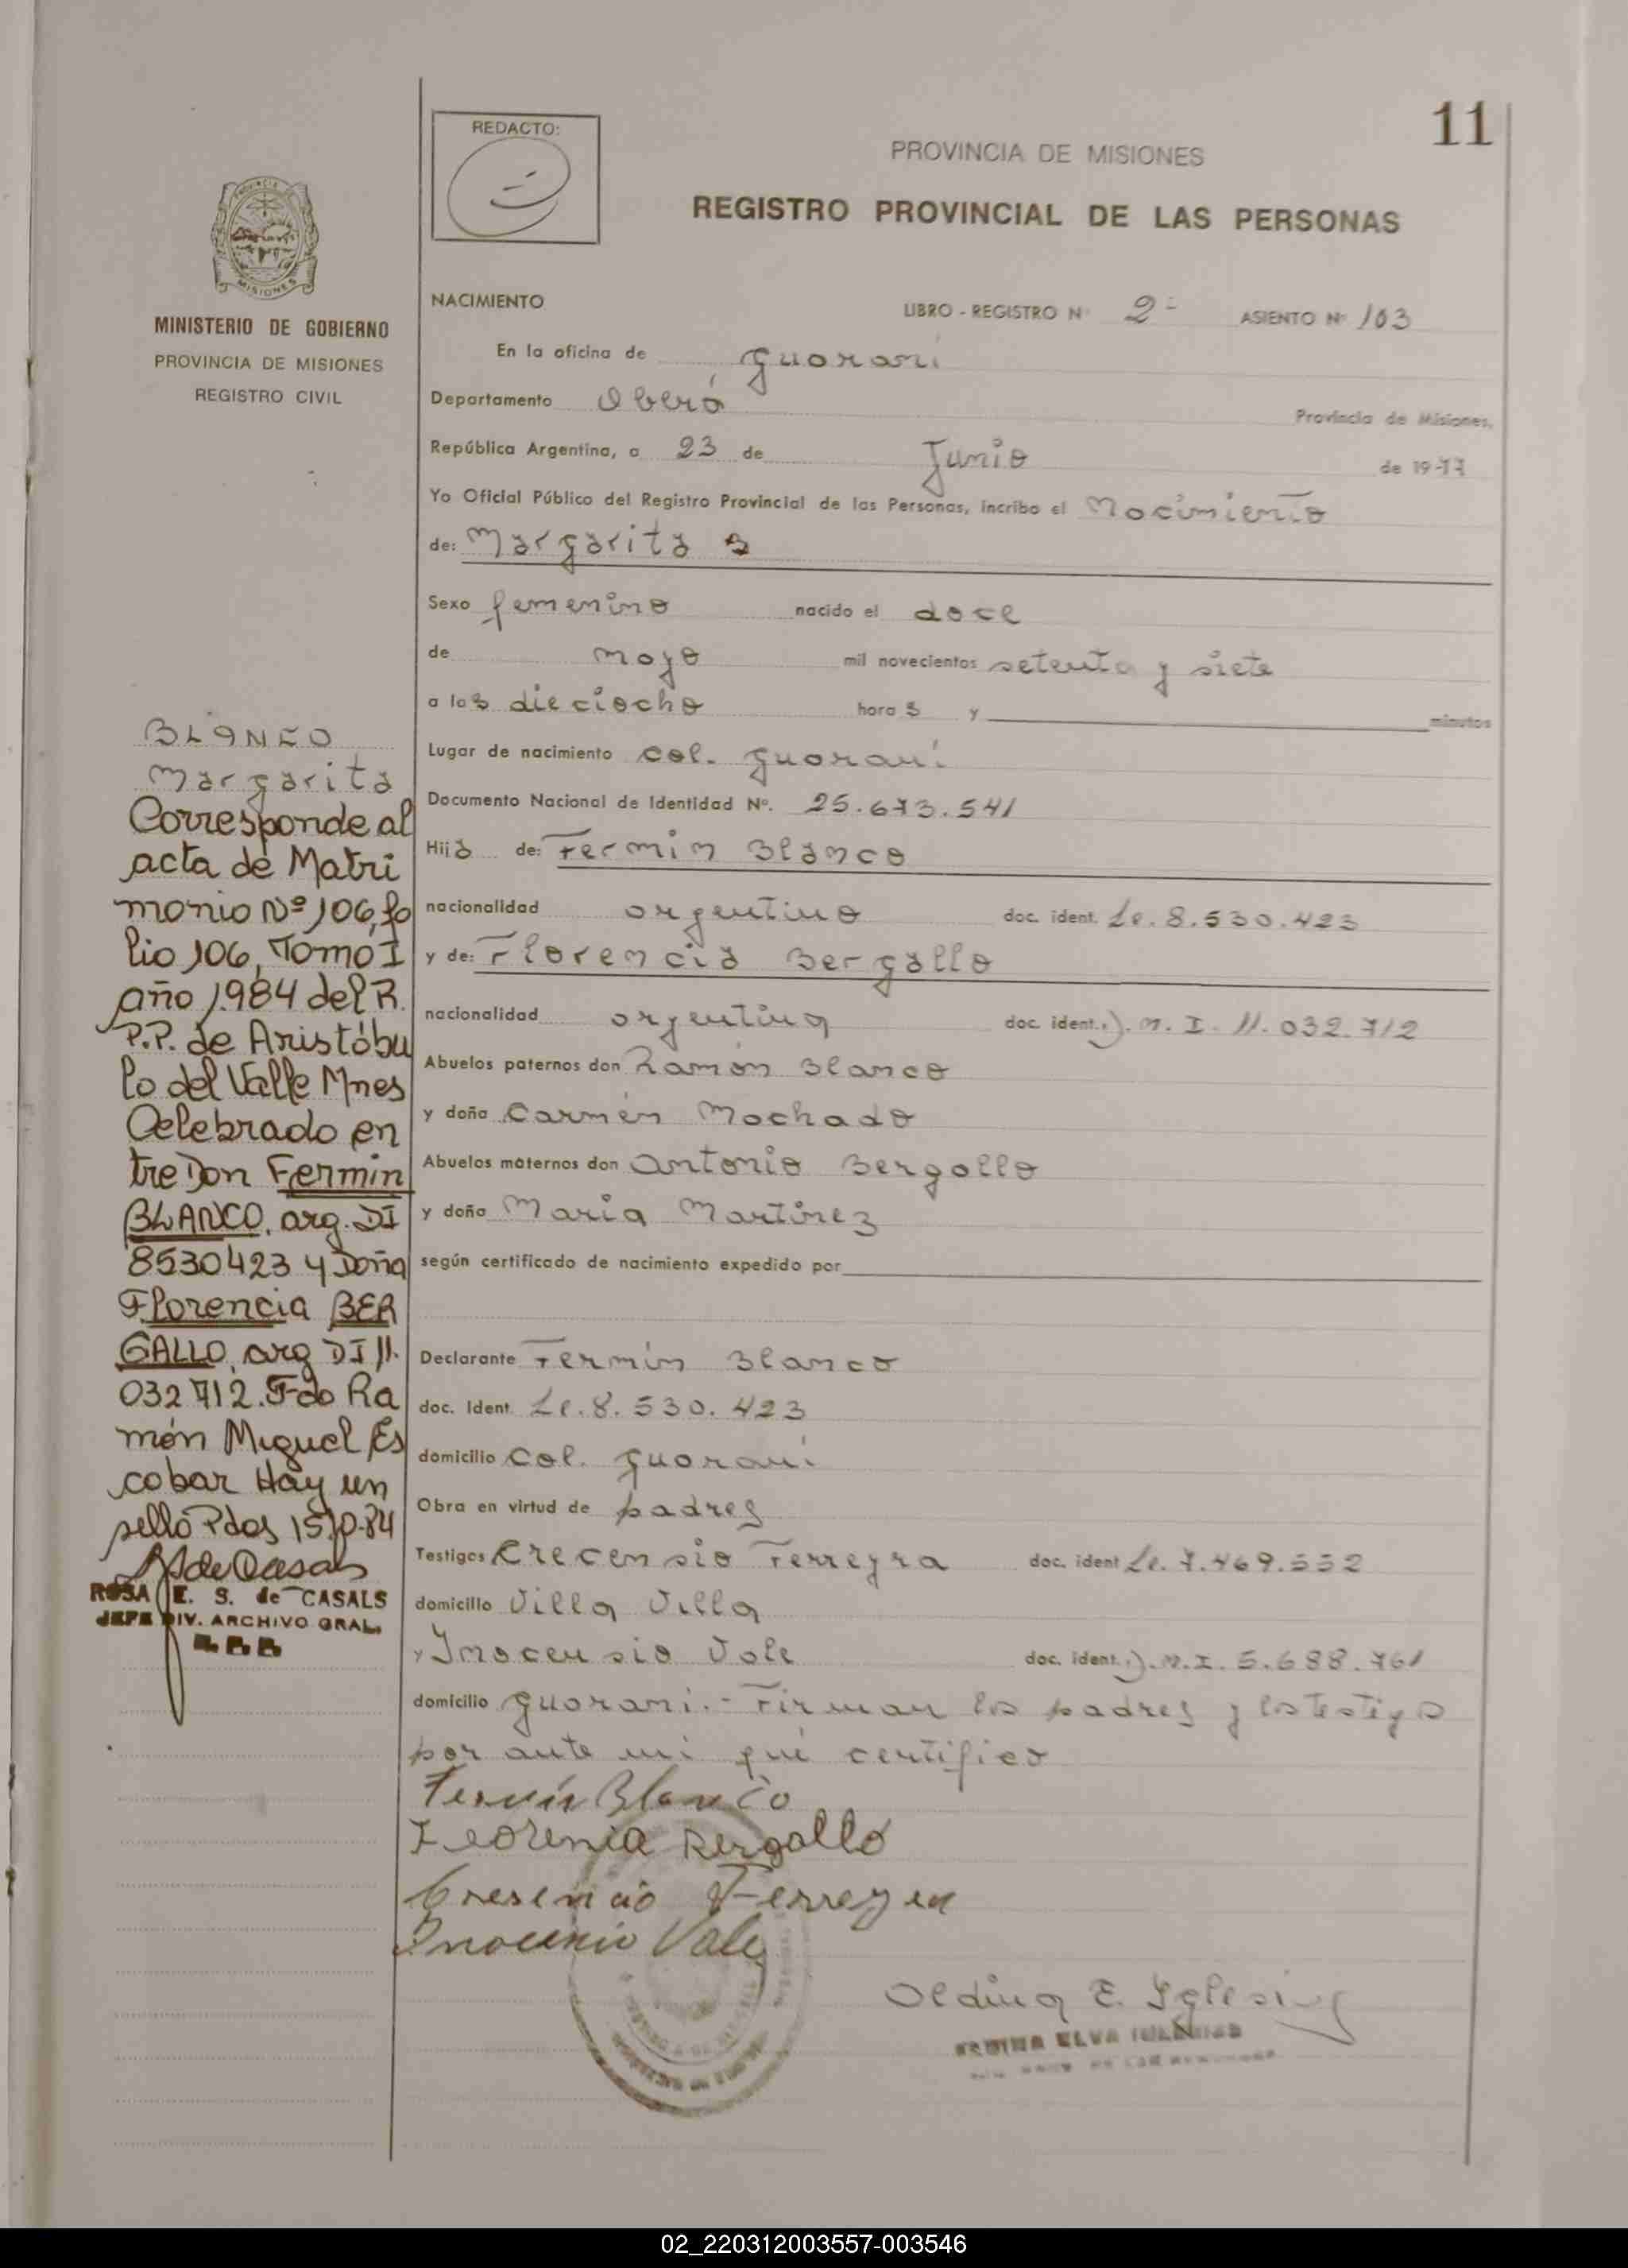 11
REDACTO:
PROVINCIA DE MISIONES
REGISTRO PROVINCIAL DE LAS PERSONAS
MISIONES
MINISTERIO DE GOBIERNO
PROVINCIA DE MISIONES
REGISTRO CIVIL
NACIMIENTO
LIBRO - REGISTRO Nº 2- ASIENTO Nº 103
En la oficina de Guaraní
Departamento Oberá Provincia de Misiones,
República Argentina, a 23 de Junio de 1977
Yo Oficial Público del Registro Provincial de las Personas, incribo el Nacimiento
de: Margarita
Sexo femenino nacido el doce
de mayo mil novecientos setenta y siete
a las dieciocho horas y minutos
Lugar de nacimiento Col. Guaraní
Documento Nacional de Identidad Nº. 25.673.541
Hija de: Fermin Blanco
nacionalidad argentino doc. ident. Le. 8.530.423
y de: Florencia Bergallo
nacionalidad argentina doc. ident. D.N.I. 11.032.712
Abuelos paternos don Ramón Blanco
y doña Carmen Machado
Abuelos maternos don Antonio Bergallo
y doña Maria Martinez
según certificado de nacimiento expedido por
Declarante Fermín Blanco
doc. Ident. Le. 8.530.423
domicilio Col. Guaraní
Obra en virtud de padres
Testigos Crecensio Ferreyra doc. ident Le. 7.469.552
domicilio Villa Villa
y Inocensio Vale doc. ident. D.N.I. 5.688.761
domicilio Guaraní.- Firman los padres y los testigos
por ante mi que certifico
Fermín Blanco
Florenia Bergallo
Cresencio Ferreyra
Inocensio Vale
Oldina E. Iglesias
BLANCO
Margarita
Corresponde al
acta de Matri
monio Nº 106, fo
lio 106, Tomo I
año 1984 del R.
P.P. de Aristóbu
lo del Valle Mnes
Celebrado en
tre Don Fermin
BLANCO, arg. DI
8530423 y Doña
Florencia BER
GALLO, arg DI 11.
032712. Fdo Ra
món Miguel Es
cobar Hay un
sello Pdas 15/0-84
ROSA E. S. de CASALS
JEFE DIV. ARCHIVO GRAL.
02_220312003557-003546